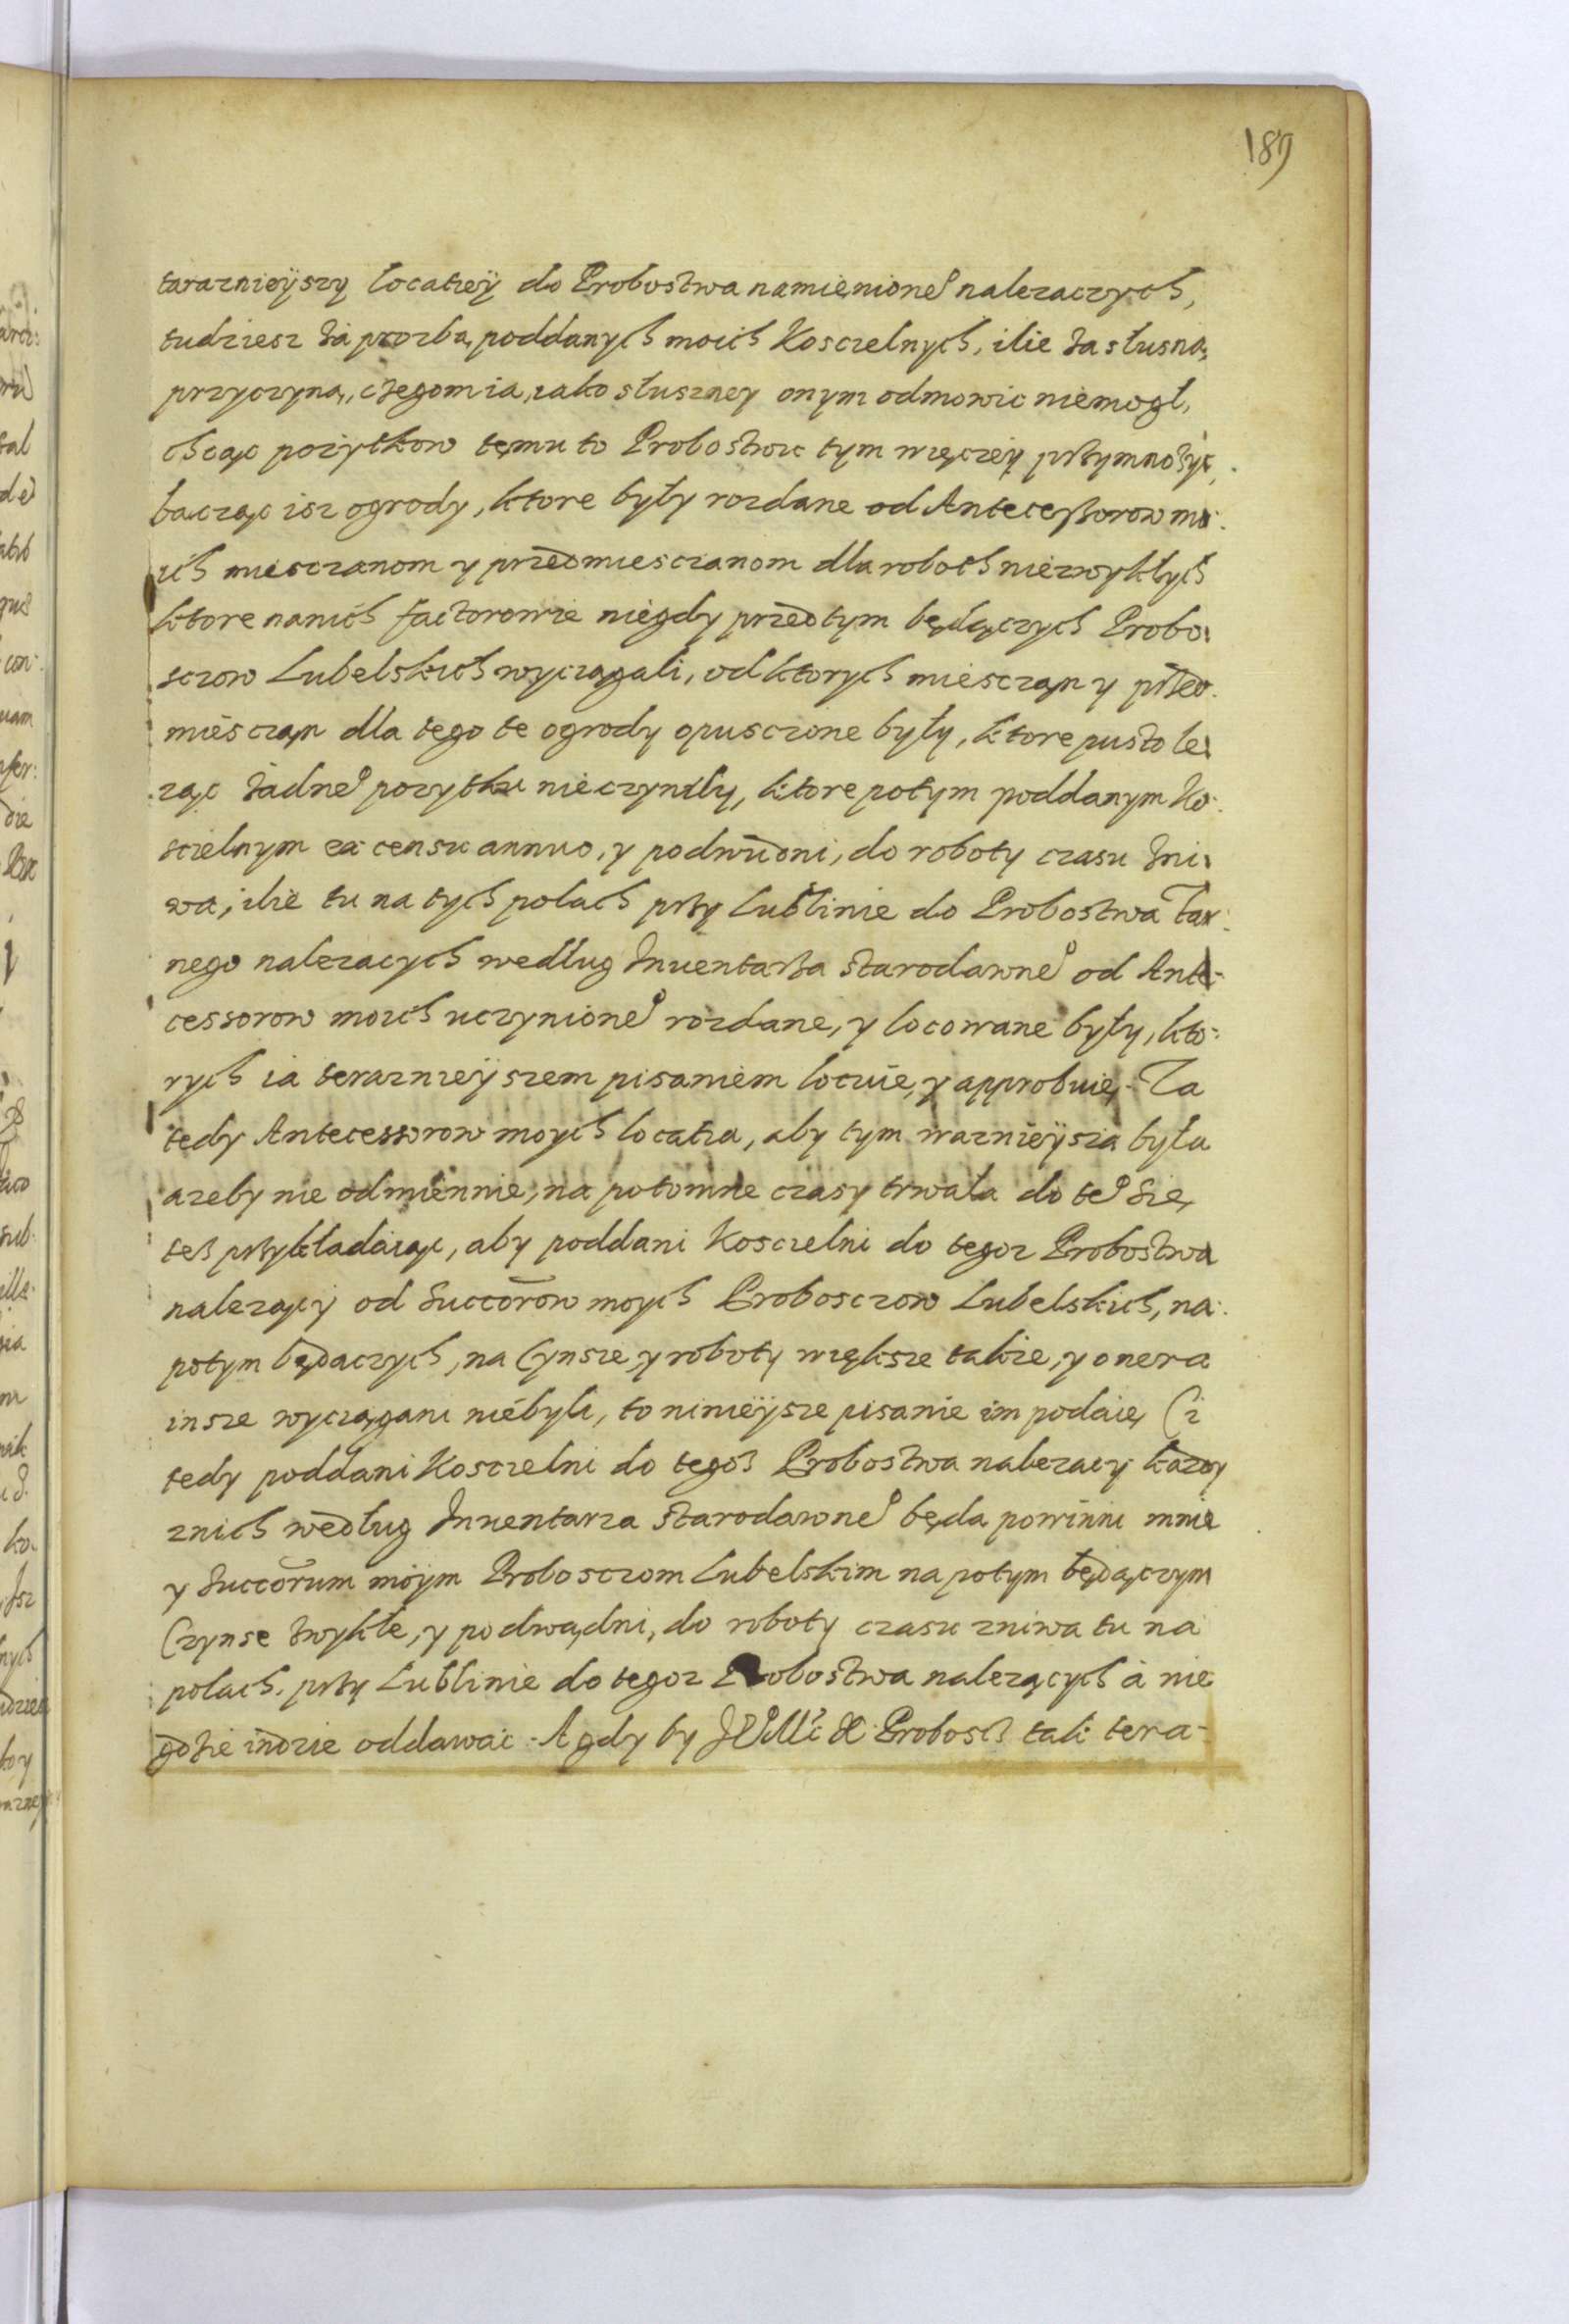 189
taraznieÿszÿ locatieÿ do Probostwa namienione° nalezaczych,
tudziesz za prozbą poddanych moich Kosczelnych, ilie za słusną
przyczyną, czegom ia, iako słuszney onym odmowic niemogł,
chcąc pozytkow temu to Probostwu tym więczeÿ przymnozyc,
bacząc isz ogrody, ktore były rozdane od Antecessorow mo:
ich miesczanom y przedmiesczanom dla roboth niezwykłych
ktore nanich factorowie niegdy przedtym będączych Probo:
sczow Lubelskich wyciągali, od ktorych miesczan y przed:
miesczan dla tego te ogrody opusczone były, ktore pusto le:
ząc zadne° pozytku nieczyniły, ktore potym poddanym Ko:
scielnym ex censu annuo, y podwudni, do roboty czasu zni:
wa, ilie tu na tych polach przy Lublinie do Probostwa Far:
nego nalezacych według Inuentarza starodawne° od Ante:
cessorow moich uczynione° rozdane, y locowane były, kto:
rych ia teraznieÿszem pisaniem locuię, y approbuię. Ta
tedy Antecessorow moych locatia, aby tym waznieÿsza była
azeby nie odmiennie, na potomne czasy trwała do te° się
tesz przykładaiąc, aby poddani Kosczelni do tegoz Probostwa
nalezącÿ od Succorow moych Probosczow Lubelskich, na:
potym będaczych, na Cynsze, y roboty większe takze, y onera
insze wyciągani niebyli, to ninieÿsze pisanie im podaię Ci
tedy poddani Kosczelni do tegosz Probostwa nalezacÿ kazdy
znich według Inuentarza starodawne° będa powinni mnie
y Succorum moÿm Probosczom Lubelskim na potym będączym
Czynse zwykłe, y podwądni, do roboty czasu zniwa tu na
polach przy Lublinie do tegoz Probostwa nalezących à nie
gdzie indzie oddawac. A gdy by Probosz tak tera-